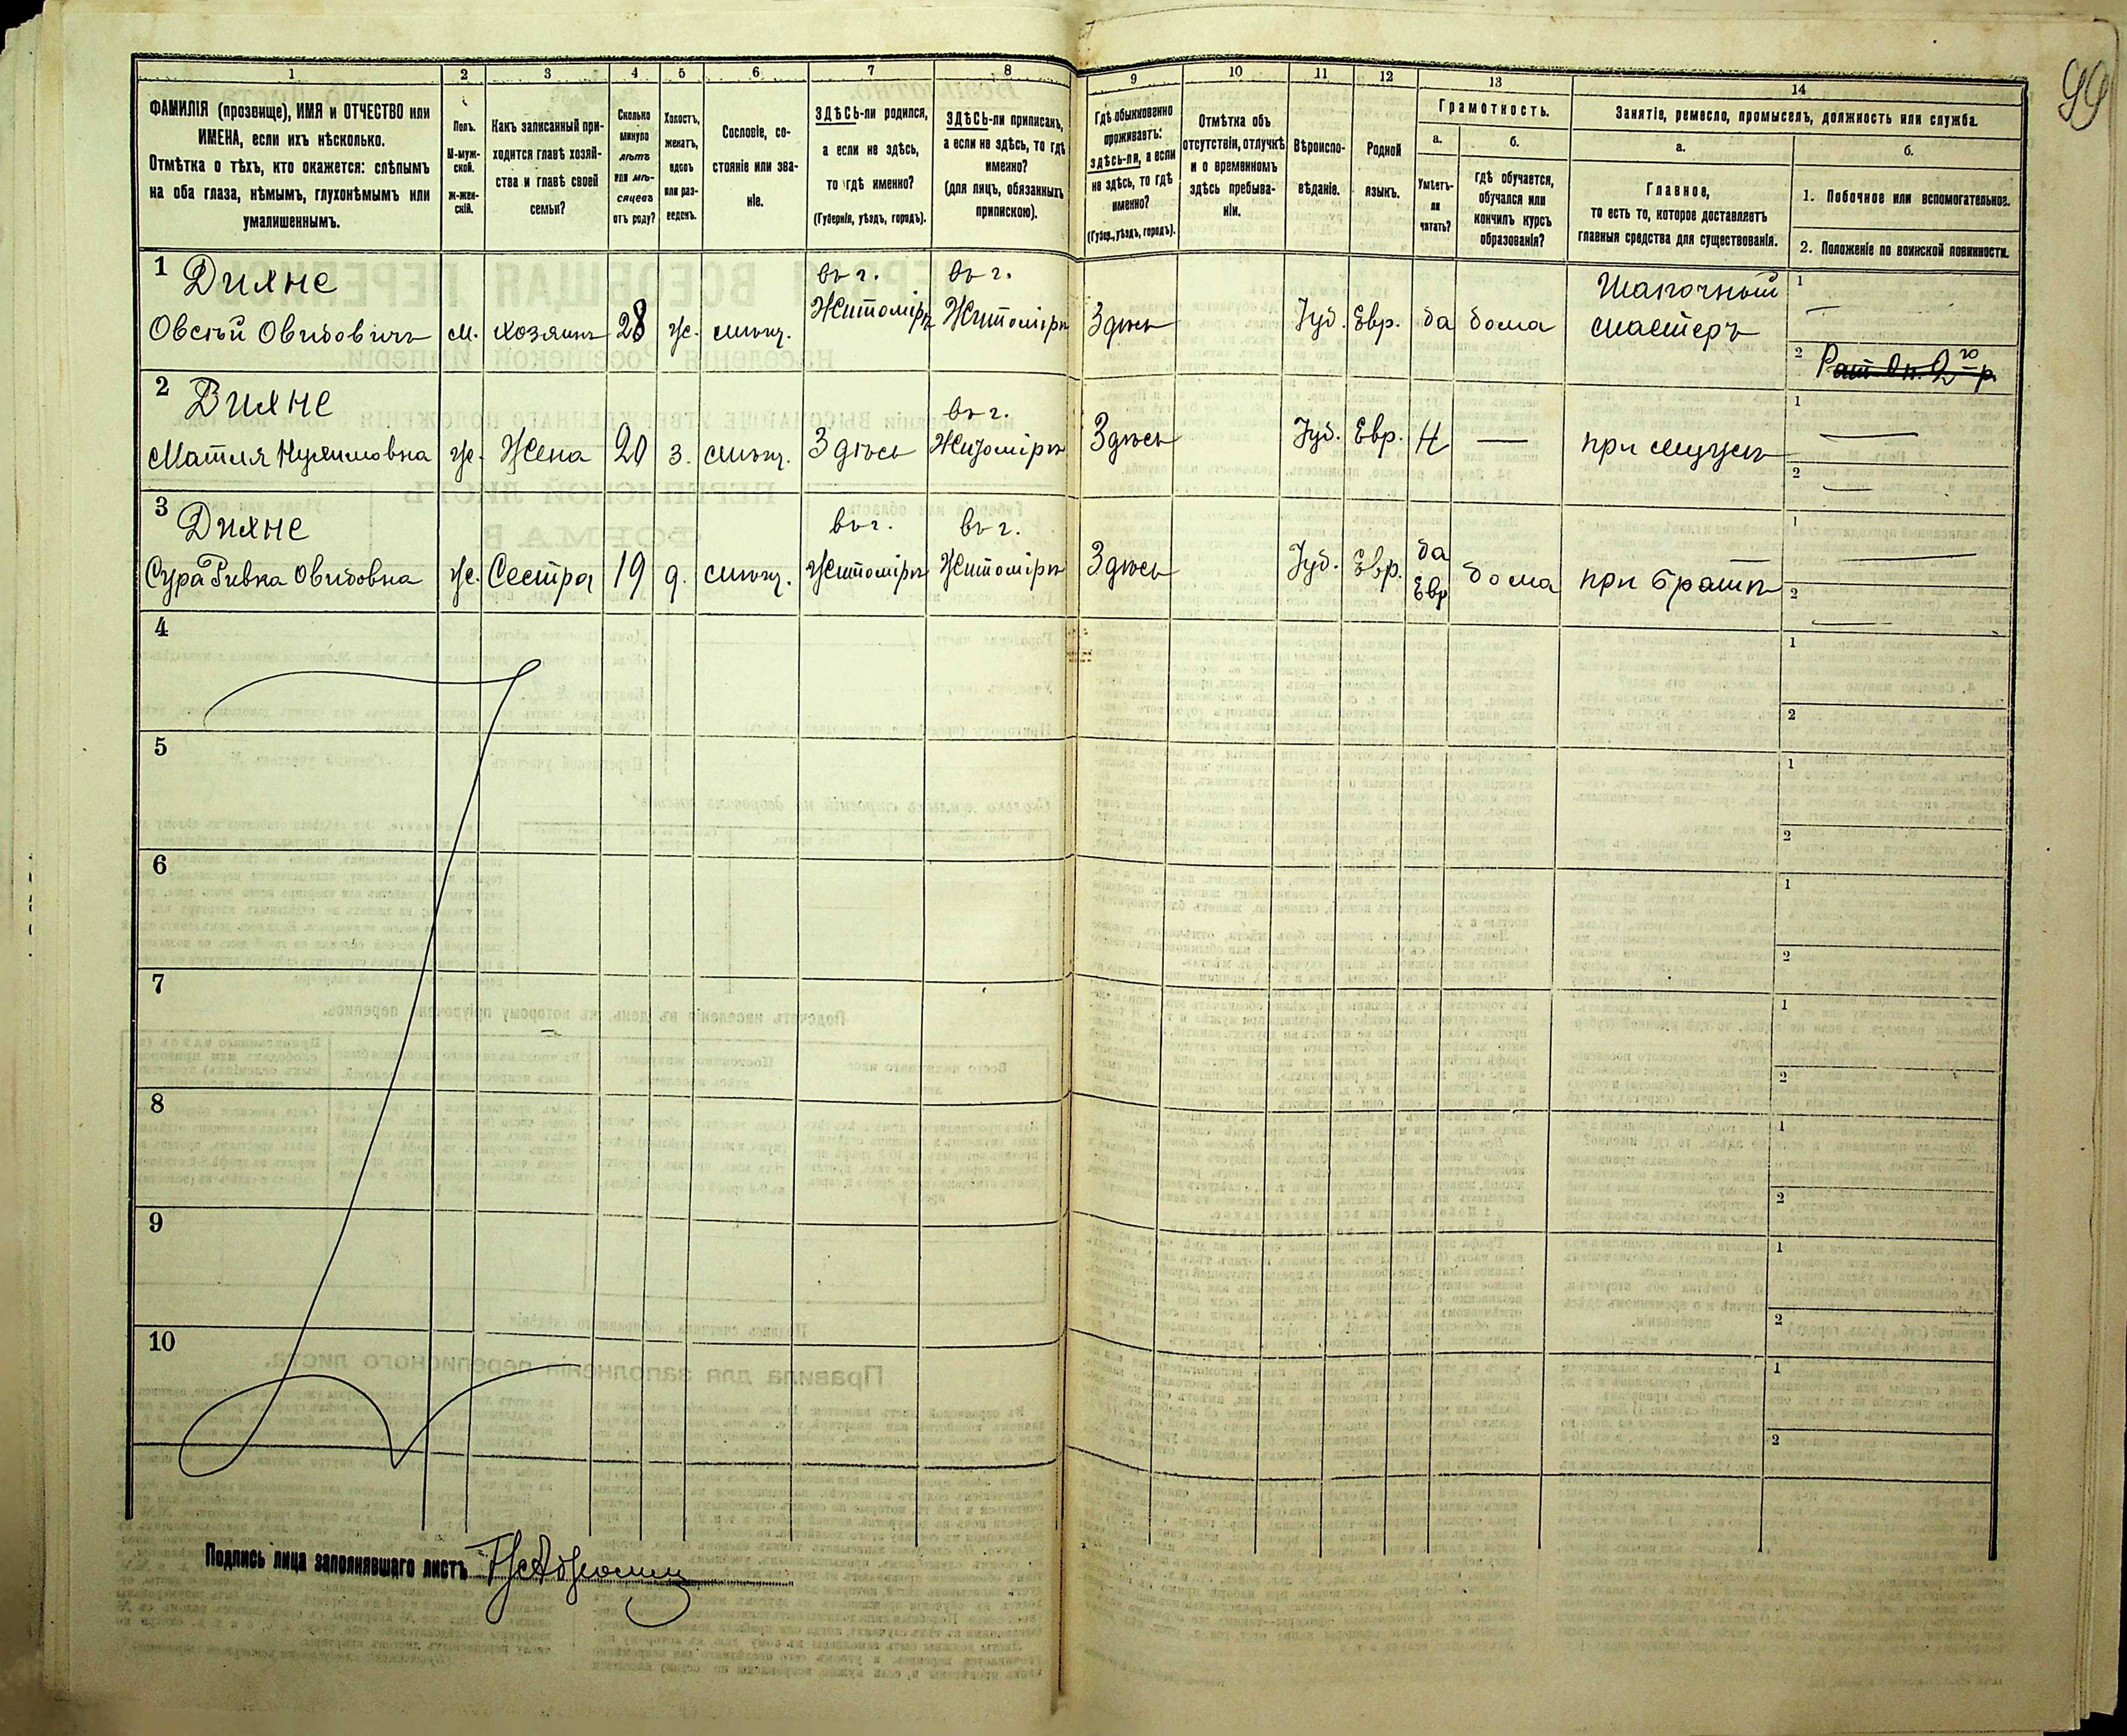 99
1 2 3 4 5 6 7 8 9 10 11 12 13 14
ФАМИЛІЯ (прозвище), ИМЯ и ОТЧЕСТВО или
ИМЕНА, если ихъ нѣсколько.
Отмѣтка о тѣхъ, кто окажется: слѣпымъ
на оба глаза, нѣмымъ, глухонѣмымъ или
умалишеннымъ.
Полъ.
М-муж-
ской.
ж-жен-
скій.
Какъ записанный при-
ходится главѣ хозяй-
ства и главѣ своей
семьи?
Сколько
минуло
лѣтъ
или мѣ-
сяцевъ
отъ роду?
Холостъ,
женатъ,
вдовъ
или раз-
веденъ.
Сословіе, со-
стояніе или зва-
ніе.
ЗДѢСЬ-ли родился,
а если не здѣсь,
то гдѣ именно?
(Губернія, уѣздъ, городъ).
ЗДѢСЬ-ли приписанъ,
а если не здѣсь, то гдѣ
именно?
(для лицъ, обязанныхъ
припискою).
Гдѣ обыкновенно
проживаетъ:
здѣсь-ли, а если
не здѣсь, то гдѣ
именно?
(Губер., уѣздъ, городъ).
Отмѣтка объ
отсутствіи, отлучкѣ
и о временномъ
здѣсь пребыва-
ніи.
Вѣроиспо-
вѣданіе.
Родной
языкъ.
Грамотность.
а.
Умѣетъ-
ли
читать?
б.
гдѣ обучается,
обучался или
кончилъ курсъ
образованія?
Занятіе, ремесло, промыселъ, должность или служба.
а.
Главное,
то есть то, которое доставляетъ
главныя средства для существованія.
б.
1. Побочное или вспомогательное.
2. Положеніе по воинской повинности.
1 Дихне въ г. въ г. Шапочный 1 —
Овсѣй Овидовичъ м. хозяинъ 28 ж. мѣщ. Житомірѣ Житомірѣ Здѣсь Іуд. Евр. да дома мастеръ
2 Рат. Оп. 2го р.
2 Дихне въ г. 1 —
Матля Нухимовна ж. Жена 20 з. мѣщ. Здѣсь Житомірѣ Здѣсь Іуд. Евр. Н — при мужѣ
2 —
3 Дихне въ г. въ г. да 1 —
Сура Ривка Овидовна ж. Сестра 19 д. мѣщ. Житомірѣ Житомірѣ Здѣсь Іуд. Евр. Евр дома при братѣ 2 —
4 1
2
5 1
2
6 1
2
7 1
2
8 1
2
9 1
2
10 1
2
Подпись лица заполнявшаго листъ